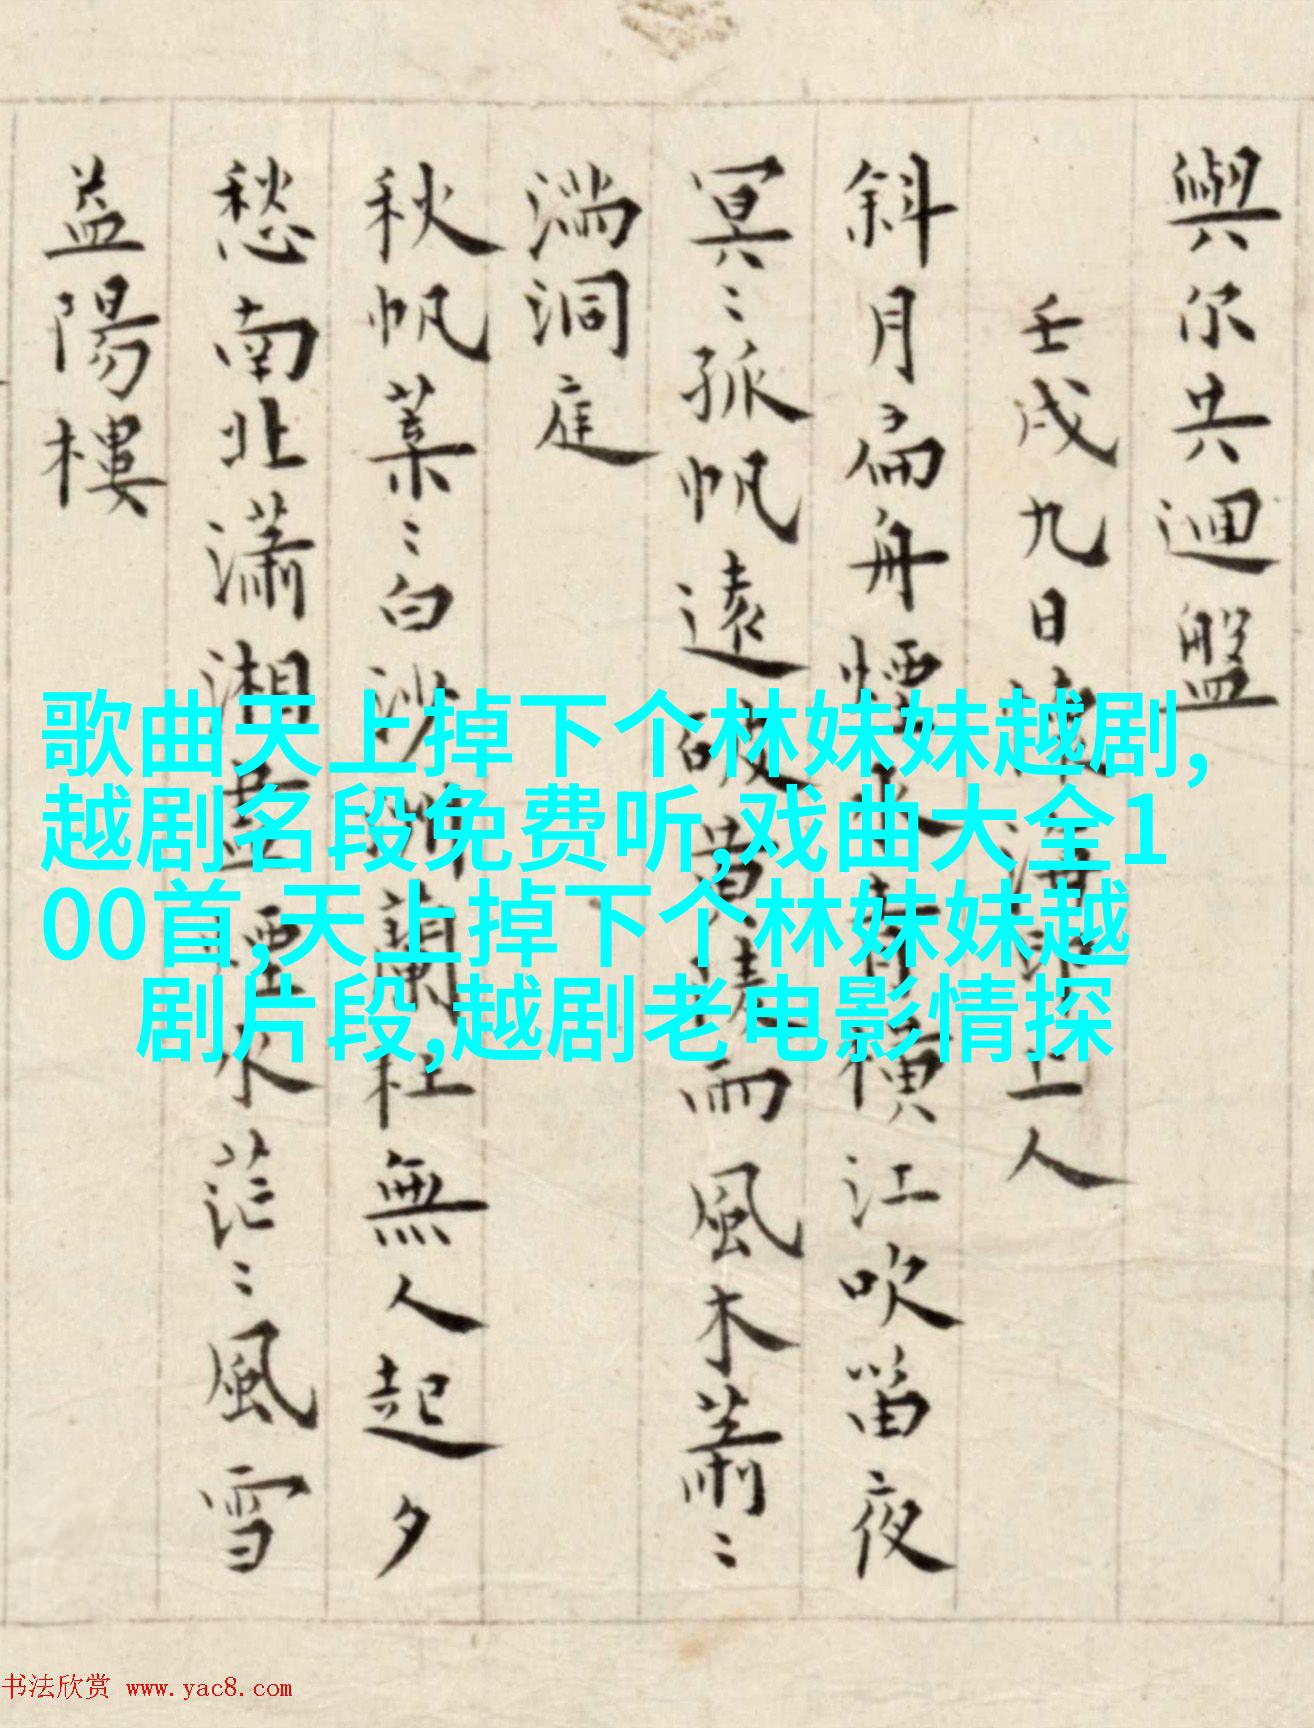 與尔共迴盤
壬戌九日 海 上人
斜月扁舟煙 水 橫江吹笛夜
冥〻孤帆遠破黄 雨風木蕭〻
满洞庭
秋帆葉〻白沙 蘭杜無人起夕
愁南北瀟湘 煙水茫〻風雪
益陽樓
歌曲天上掉下个林妹妹越剧,
越剧名段免费听,戏曲大全1
00首,天上掉下个林妹妹越
剧片段,越剧老电影情探
书法欣赏 www.yac8.com